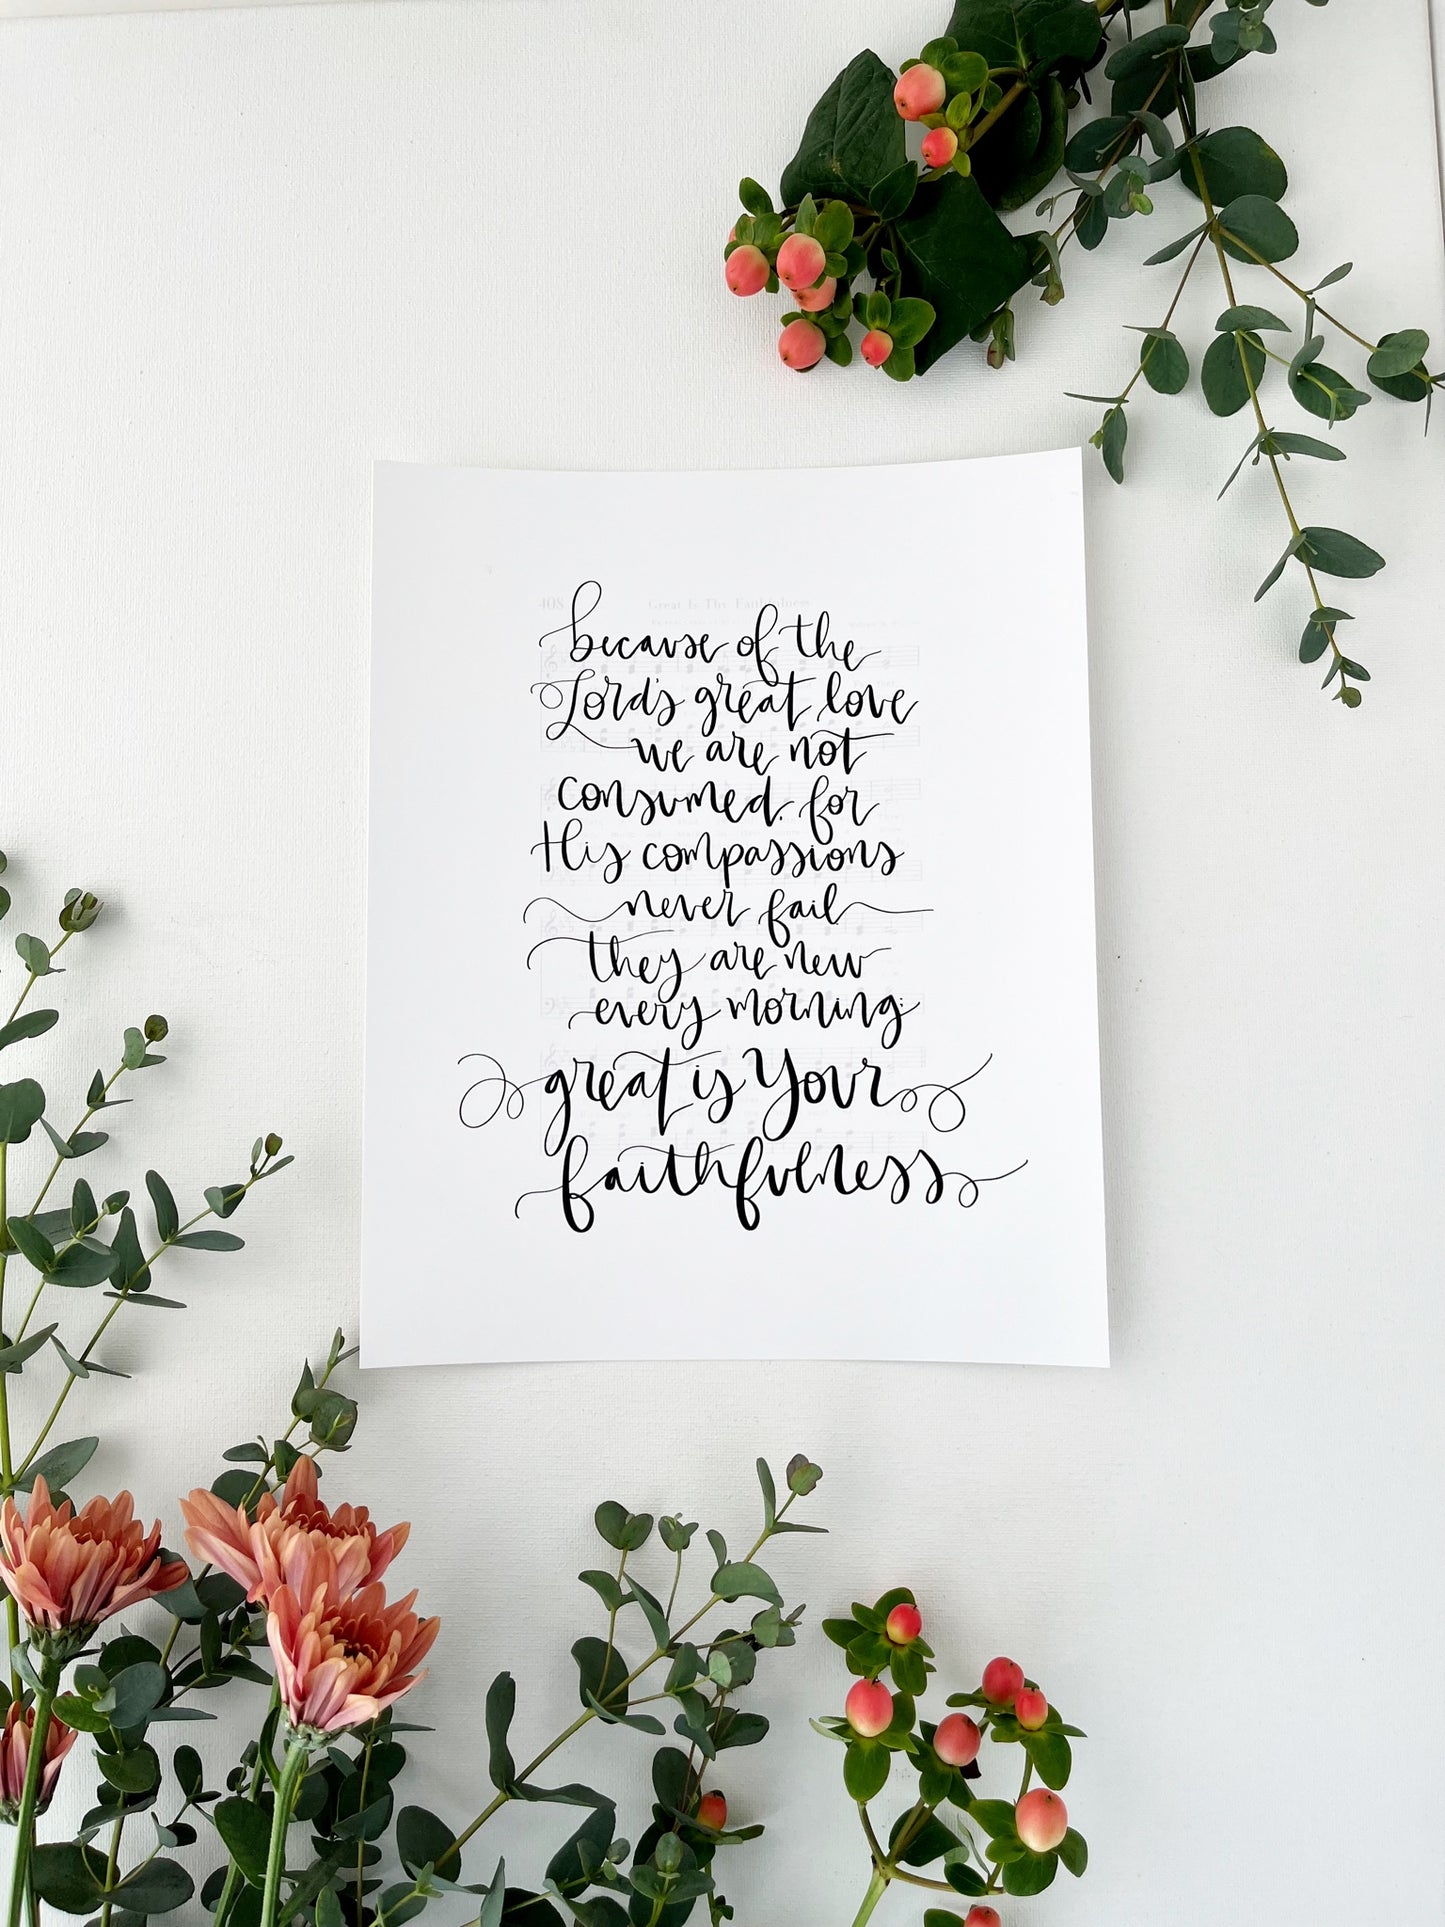 408
Great Is Thy Faithfulness
because of the
Lord's great love
we are not
consumed, for
His compassions
never fail
they are new
every morning;
great is Your
faithfulness